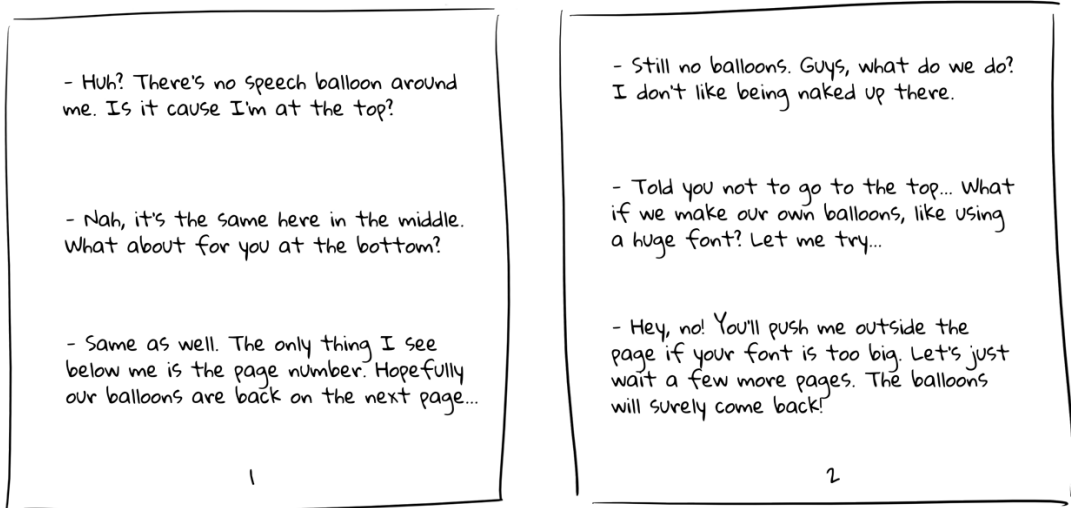 - Huh? There's no speech balloon around
me. Is it cause I'm at the top?
- Nah, it's the same here in the middle.
What about for you at the bottom?
- Same as well. The only thing I see
below me is the page number. Hopefully
our balloons are back on the next page...
1
- Still no balloons. Guys, what do we do?
I don't like being naked up there.
- Told you not to go to the top... What
if we make our own balloons, like using
a huge font? Let me try...
- Hey, no! You'll push me outside the
page if your font is too big. Let's just
wait a few more pages. The balloons
will surely come back!
2